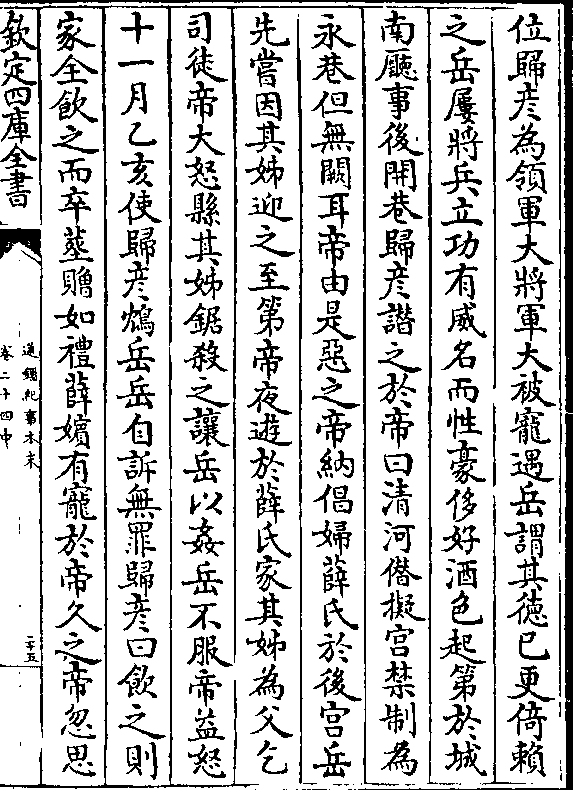 位歸彦為領軍大將軍大被寵遇岳謂其徳已更倚賴
之岳屢將兵立功有威名而性豪侈好酒色起第於城
南廳事後開巷歸彦譖之於帝曰清河僭擬宫禁制為
永巷但無闕耳帝由是惡之帝納倡婦薛氏於後宫岳
先嘗因其姊迎之至第帝夜遊於薛氏家其姊為父乞
司徒帝大怒縣其姊鋸殺之讓岳以姦岳不服帝益怒
十一月乙亥使歸彦鴆岳岳自訴無罪歸彦曰飲之則
家全飲之而卒葬贈如禮薛嬪有寵於帝久之帝忽思
欽定四庫全書
通鑑紀事本末
卷二十四中
二十五